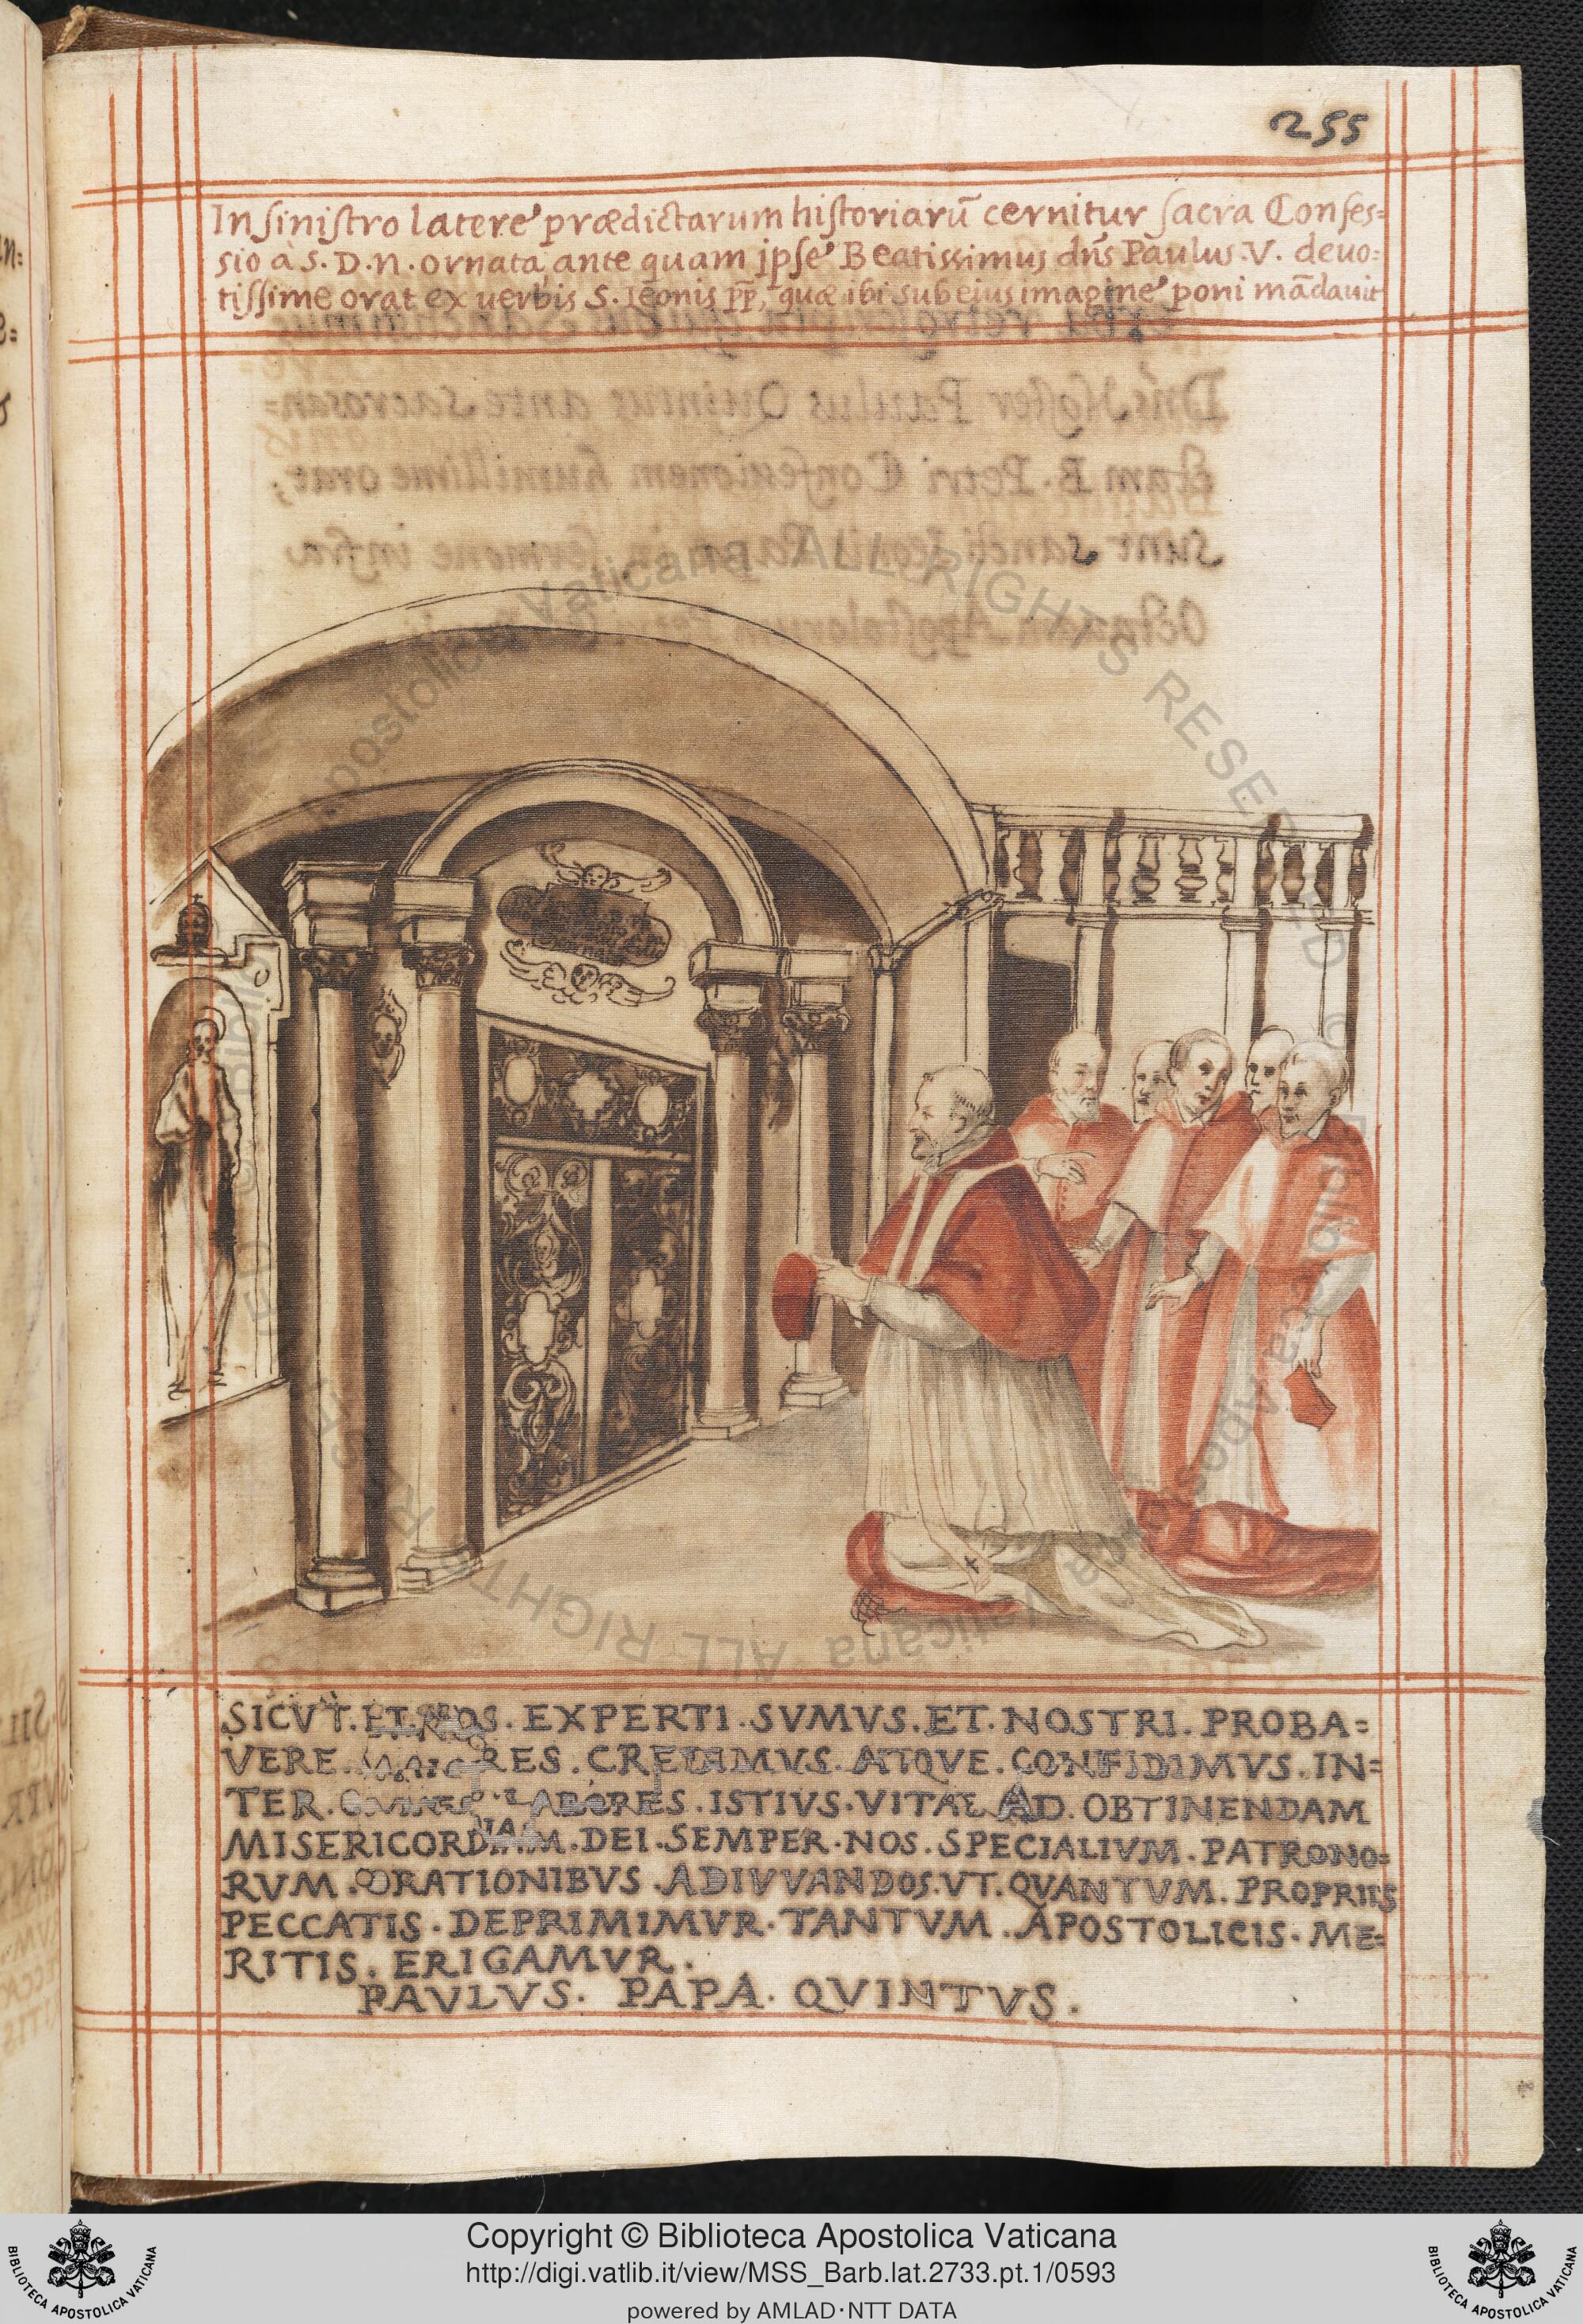 255
In sinistro latere prædictarum historiarū cernitur sacra Confes=
sio à S. D. N. ornata, ante quam ipse Beatissimus dn̄s Paulus .V. deuo=
tissime orat ex uerbis S. Leonis pp̄, quæ ibi sub eius imagine poni mādauit
SICVT. ET. NOS. EXPERTI. SVMVS. ET. NOSTRI. PROBA=
VERE. MAIORES. CREDIMVS. ATQVE. CONFIDIMVS. IN=
TER. OMNES. LABORES. ISTIVS. VITAE AD. OBTINENDAM
MISERICORDIAM. DEI. SEMPER. NOS. SPECIALIVM. PATRONO=
RVM. ORATIONIBVS. ADIVVANDOS. VT. QVANTVM. PROPRIIS
PECCATIS. DEPRIMIMVR. TANTVM. APOSTOLICIS. ME=
RITIS. ERIGAMVR.
PAVLVS. PAPA. QVINTVS.
Copyright © Biblioteca Apostolica Vaticana
http://digi.vatlib.it/view/MSS_Barb.lat.2733.pt.1/0593
powered by AMLAD·NTT DATA
BIBLIOTECA APOSTOLICA VATICANA
BIBLIOTECA APOSTOLICA VATICANA